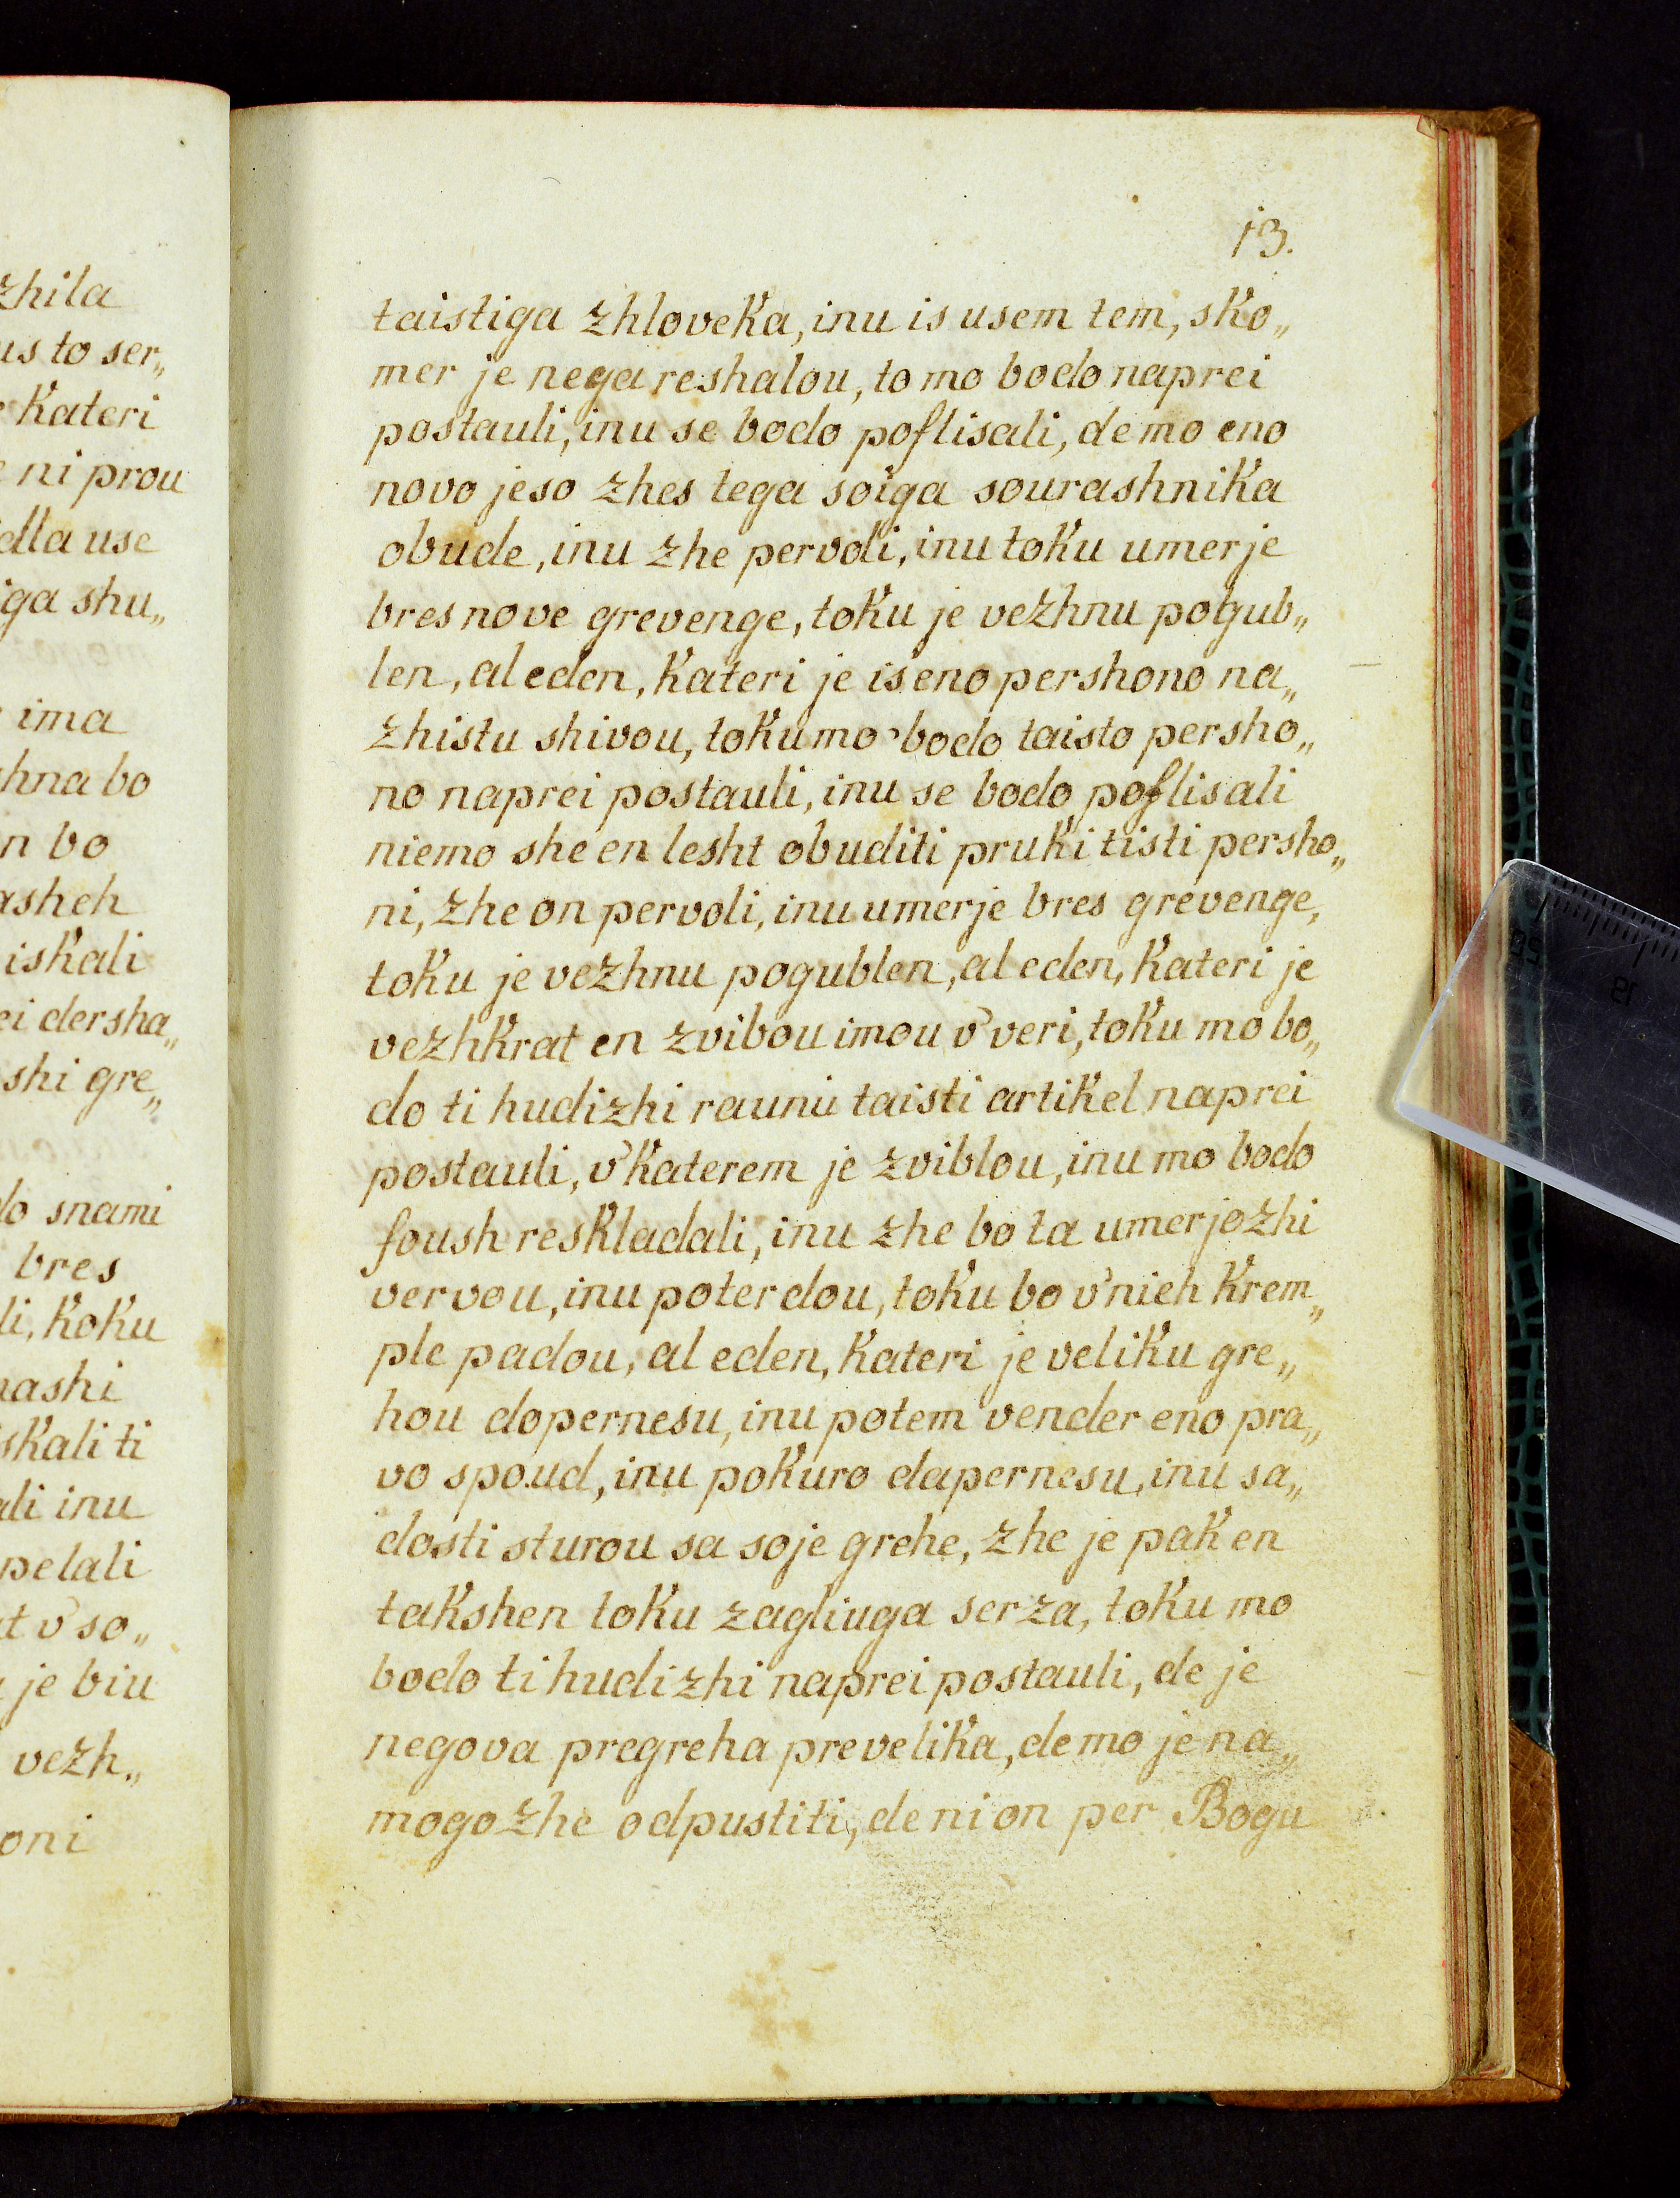 zhila
us to ser„
Kateri
ni prou
dla use
iga shu„
ima
hna bo
n bo
asheh
iskali
ei dersha„
shi gre„
do snami
bres
li, Koku
nashi
skali ti
ali inu
pelali
at v' so„
je biu
vezh„
oni
13.
taistiga zhloveKa, inu is usem tem, sKo„
mer je nega reshalou, to mo bodo naprei
postauli, inu se bodo poflisali, de mo eno
novo jeso zhes tega soiga sourashniKa
obude, inu zhe pervoli, inu toKu umerje
bres nove grevenge, toKu je vezhnu pogub„
len, al eden, Kateri je is eno pershono na„
zhistu shivou, toKu mo bodo taisto persho„
no naprei postauli, inu se bodo poflisali
niemo she en lesht obuditi pruKi tisti persho„
ni, zhe on pervoli, inu umerje bres grevenge,
toKu je vezhnu pogublen, al eden, Kateri je
vezhKrat en zvibou imou v' veri, toKu mo bo„
do ti hudizhi raunu taisti artiKel naprei
postauli, v' Katerem je zviblou, inu mo bodo
foush resKladali, inu zhe bo ta umerjozhi
vervou, inu poterdou, toKu bo v' nieh Krem„
ple padou, al eden, Kateri je veliKu gre„
hou dopernesu, inu potem vender eno pra„
vo spoud, inu poKuro dapernesu, inu sa„
dosti sturou sa soje grehe, zhe je paK en
taKshen toKu zagliuga serza, toKu mo
bodo ti hudizhi naprei postauli, de je
negova pregreha preveliKa, de mo je na„
mogozhe odpustiti, de ni on per Bogu